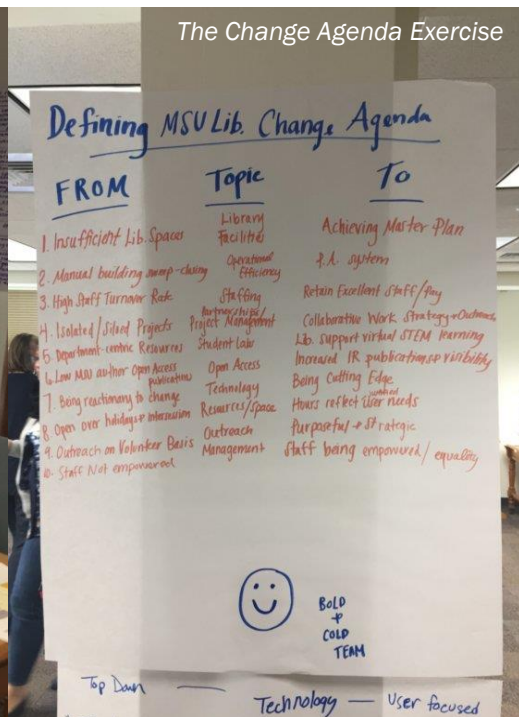 The Change Agenda Exercise
Defining MSU Lib. Change Agenda
FROM Topic To
1. Insufficient Lib. Spaces Library Facilities Achieving Master Plan
2. Manual building sweep-closing Operational Efficiency P.A. system
3. High Staff Turnover Rate Staffing Retain Excellent Staff/pay
4. Isolated/Siloed Projects Partnerships/ Project Management Collaborative Work Strategy + Outreach
5. Department-centric Resources Student Labs Lib. support virtual STEM learning
6. Low MSU author Open Access publications Open Access Increased IR publications + visibility
7. Being reactionary to change Technology Being Cutting Edge
8. Open over holidays + intersession Resources/Space Hours reflect user needs
9. Outreach on Volunteer Basis Outreach Purposeful + Strategic
10. Staff Not empowered Management Staff being empowered/equality
BOLD
+
COLD
TEAM
Top Down —
Technology — User focused